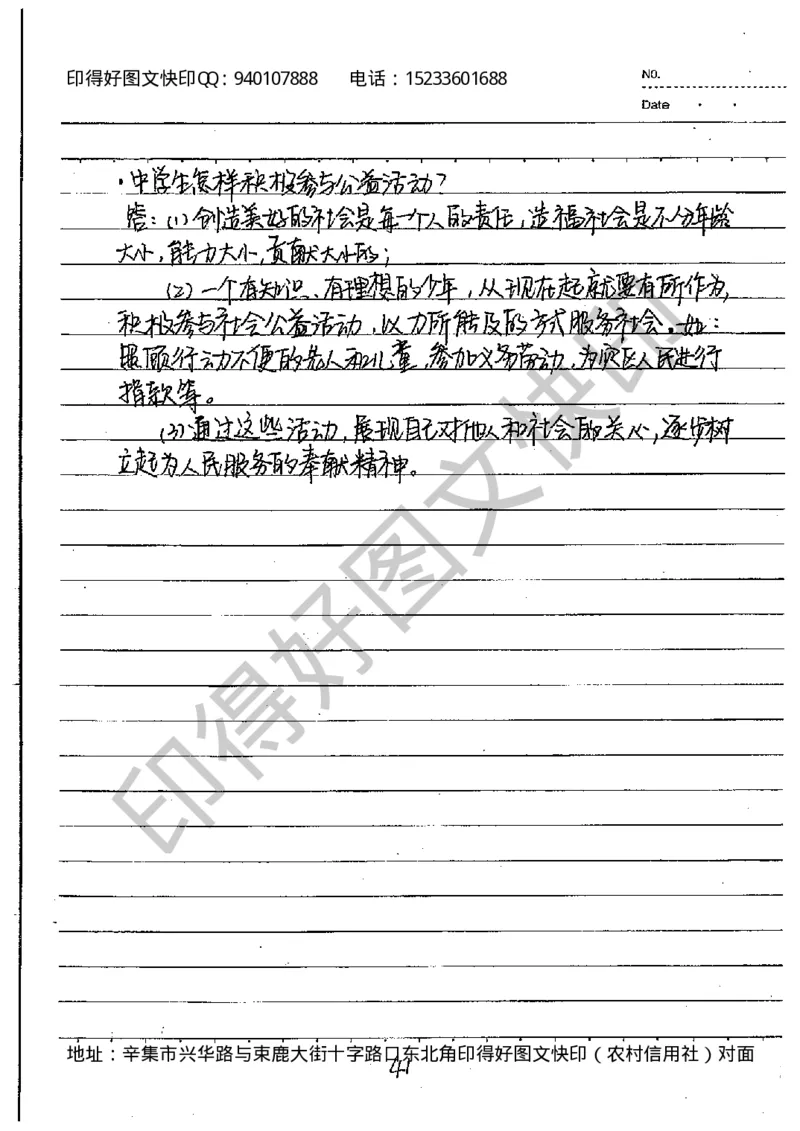 印得好图文快印QQ：940107888　电话：15233601688
NO.
Date
·中学生怎样积极参与公益活动？
答：(1)创造美好的社会是每一个人的责任，造福社会是不分年龄
大小，能力大小，贡献大小的；
(2)一个有知识、有理想的少年，从现在起就要有所作为，
积极参与社会公益活动，以力所能及的方式服务社会。如：
照顾行动不便的老人和儿童，参加义务劳动，为灾区人民进行
捐款等。
(3)通过这些活动，展现自己对他人和社会的关心，逐步树
立起为人民服务的奉献精神。
印得好图文快印
地址：辛集市兴华路与束鹿大街十字路口东北角印得好图文快印（农村信用社）对面
41